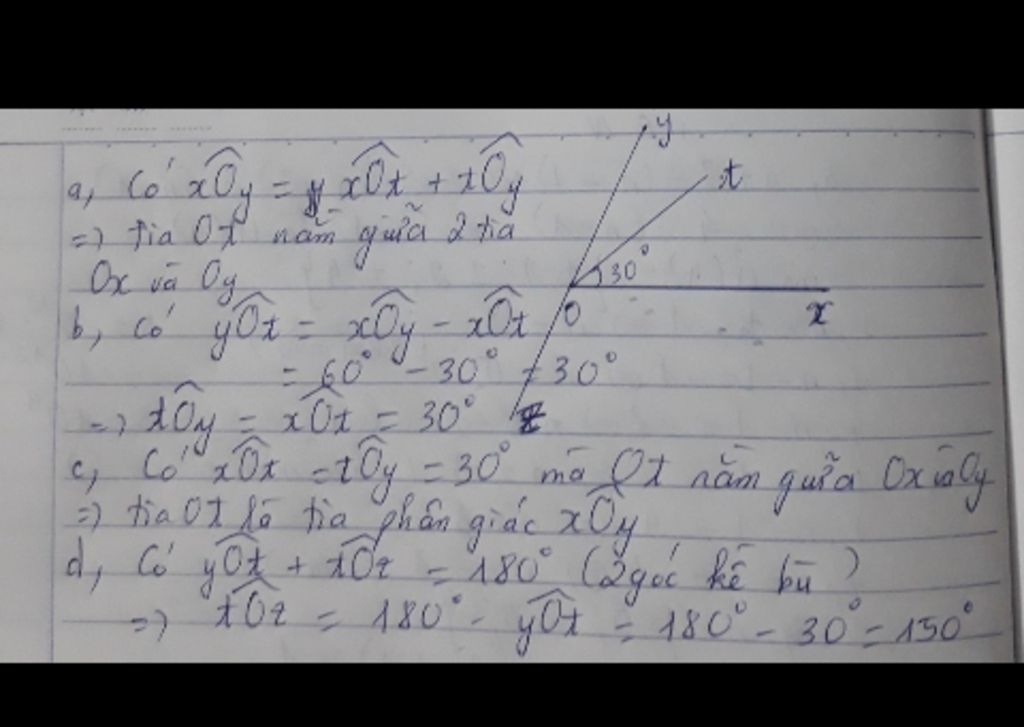 a, Có xOy = xOt + tOy
=> tia Ot nằm giữa 2 tia
Ox và Oy
b, có yOt = xOy - xOt
= 60° - 30° = 30°
=> tOy = xOt = 30°
c, Có xOt = tOy = 30° mà Ot nằm giữa Ox và Oy
=> tia Ot là tia phân giác xOy
d, Có yOt + tOz = 180° (2 góc kề bù)
=> tOz = 180° - yOt = 180° - 30° = 150°
y
t
30°
O
x
z